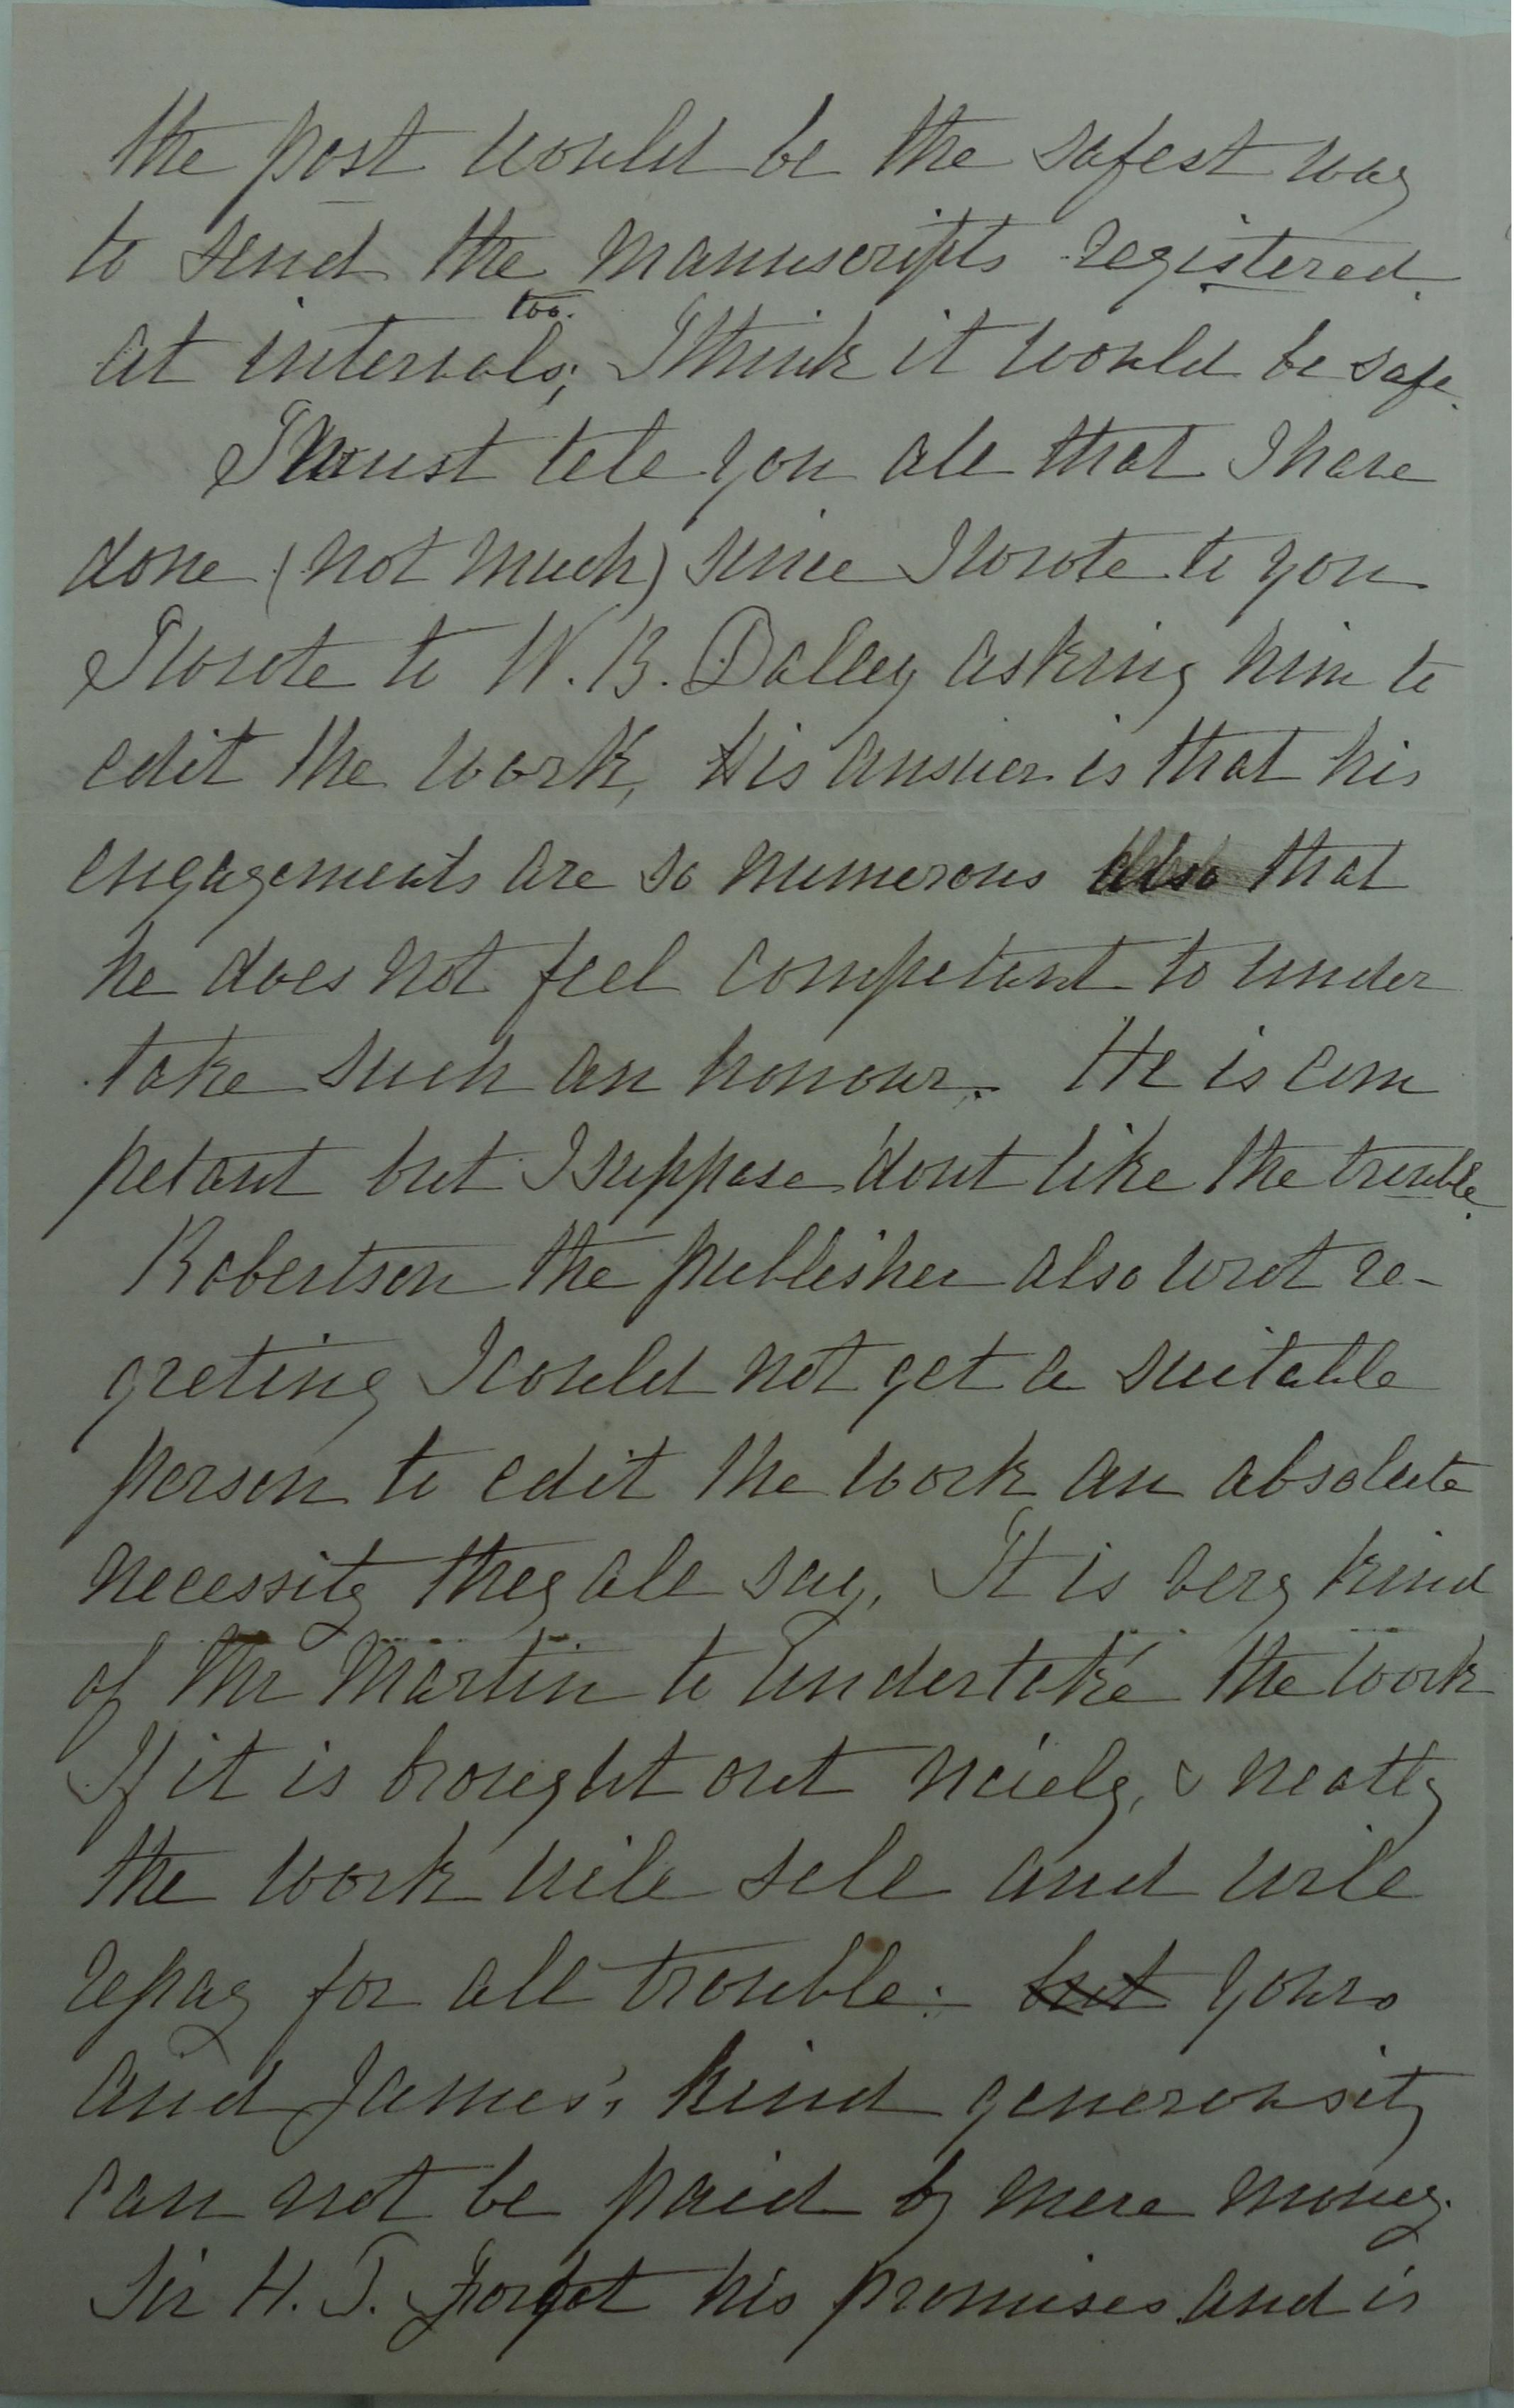 the post would be the safest way
to send the manuscripts registered
too.
at intervals; I think it would be safe.
I must tell you all that I have
done (not much) since I wrote to you
I wrote to W. B. Dalley asking him to
edit the work, His answer is that his
engagements are so numerous also that
he does not feel competant to under
take such an honour. He is com
petant but I suppose dont like the trouble.
Robertson the publisher also wrot re-
greting I could not get a suitable
person to edit the work an absolute
necessity they all say, It is very kind
of Mr Martin to undertake the work
If it is brought out nicely, & neatly
the work will sell and will
repay for all trouble. but yours
and James's kind generousity
can not be paid by mere money.
Sir H. P. Forgot his promises and is